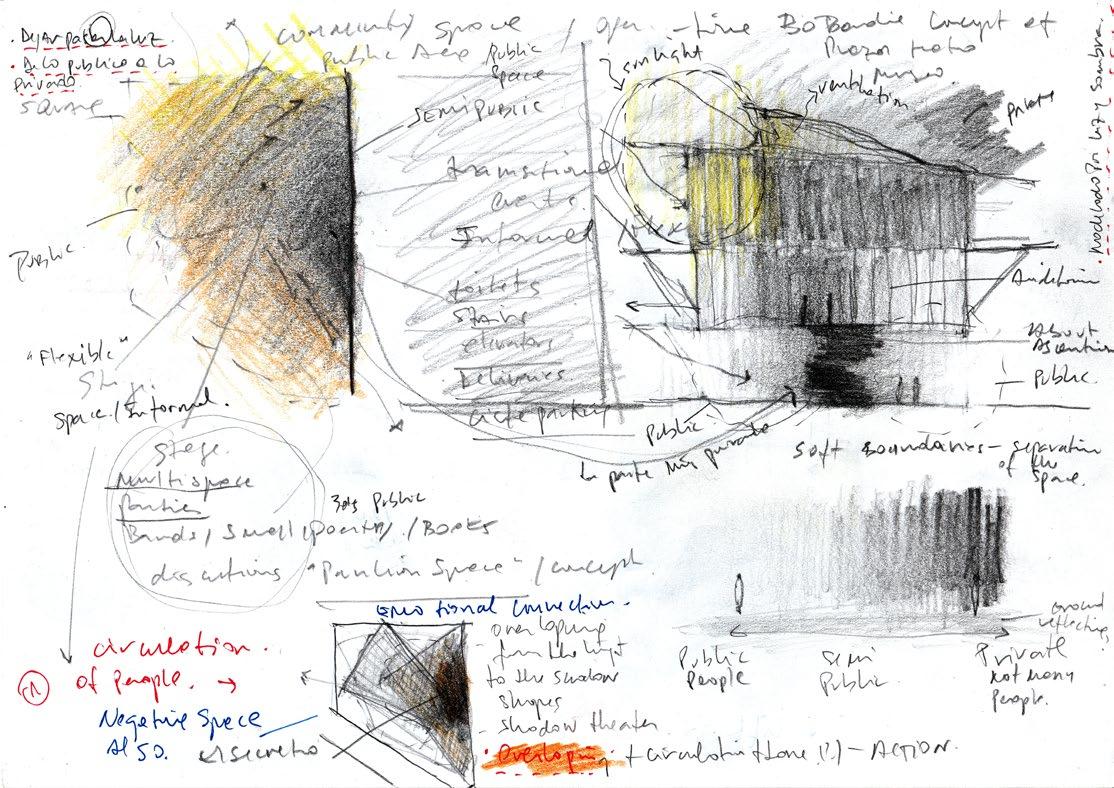 . Dejar pasar la luz.
. De lo publico a lo
Privado
square
community space / open - Lina BoBardi Concept of
public Area
Public
Space
sunlight
ventilation
Museo.
SEMIPUBLIC
transitional
events.
Informal
toilets
stairs
elevators
Deliveries.
cicle parking
private
Modelado Por luz y Sombra.
Auditorium
Public.
Public
la parte más privada
Soft Boundaries - separation
of the
space.
Public
"Flexible"
stage.
space/Informal.
stage.
Multispace
parties
Bands/ small/Poetry/ /Books
/ concept
"Pavilion Space"
Public
emotional connection.
overlapping
from the light
to the shadow
shapes
- shadow theater
. Overlaping. + circulation + Lane (!) - ACTION.
circulation.
of People. →
Negative Space
El secreto
ground
reflecting
Public
People
semi
Public.
Private
not many
People.